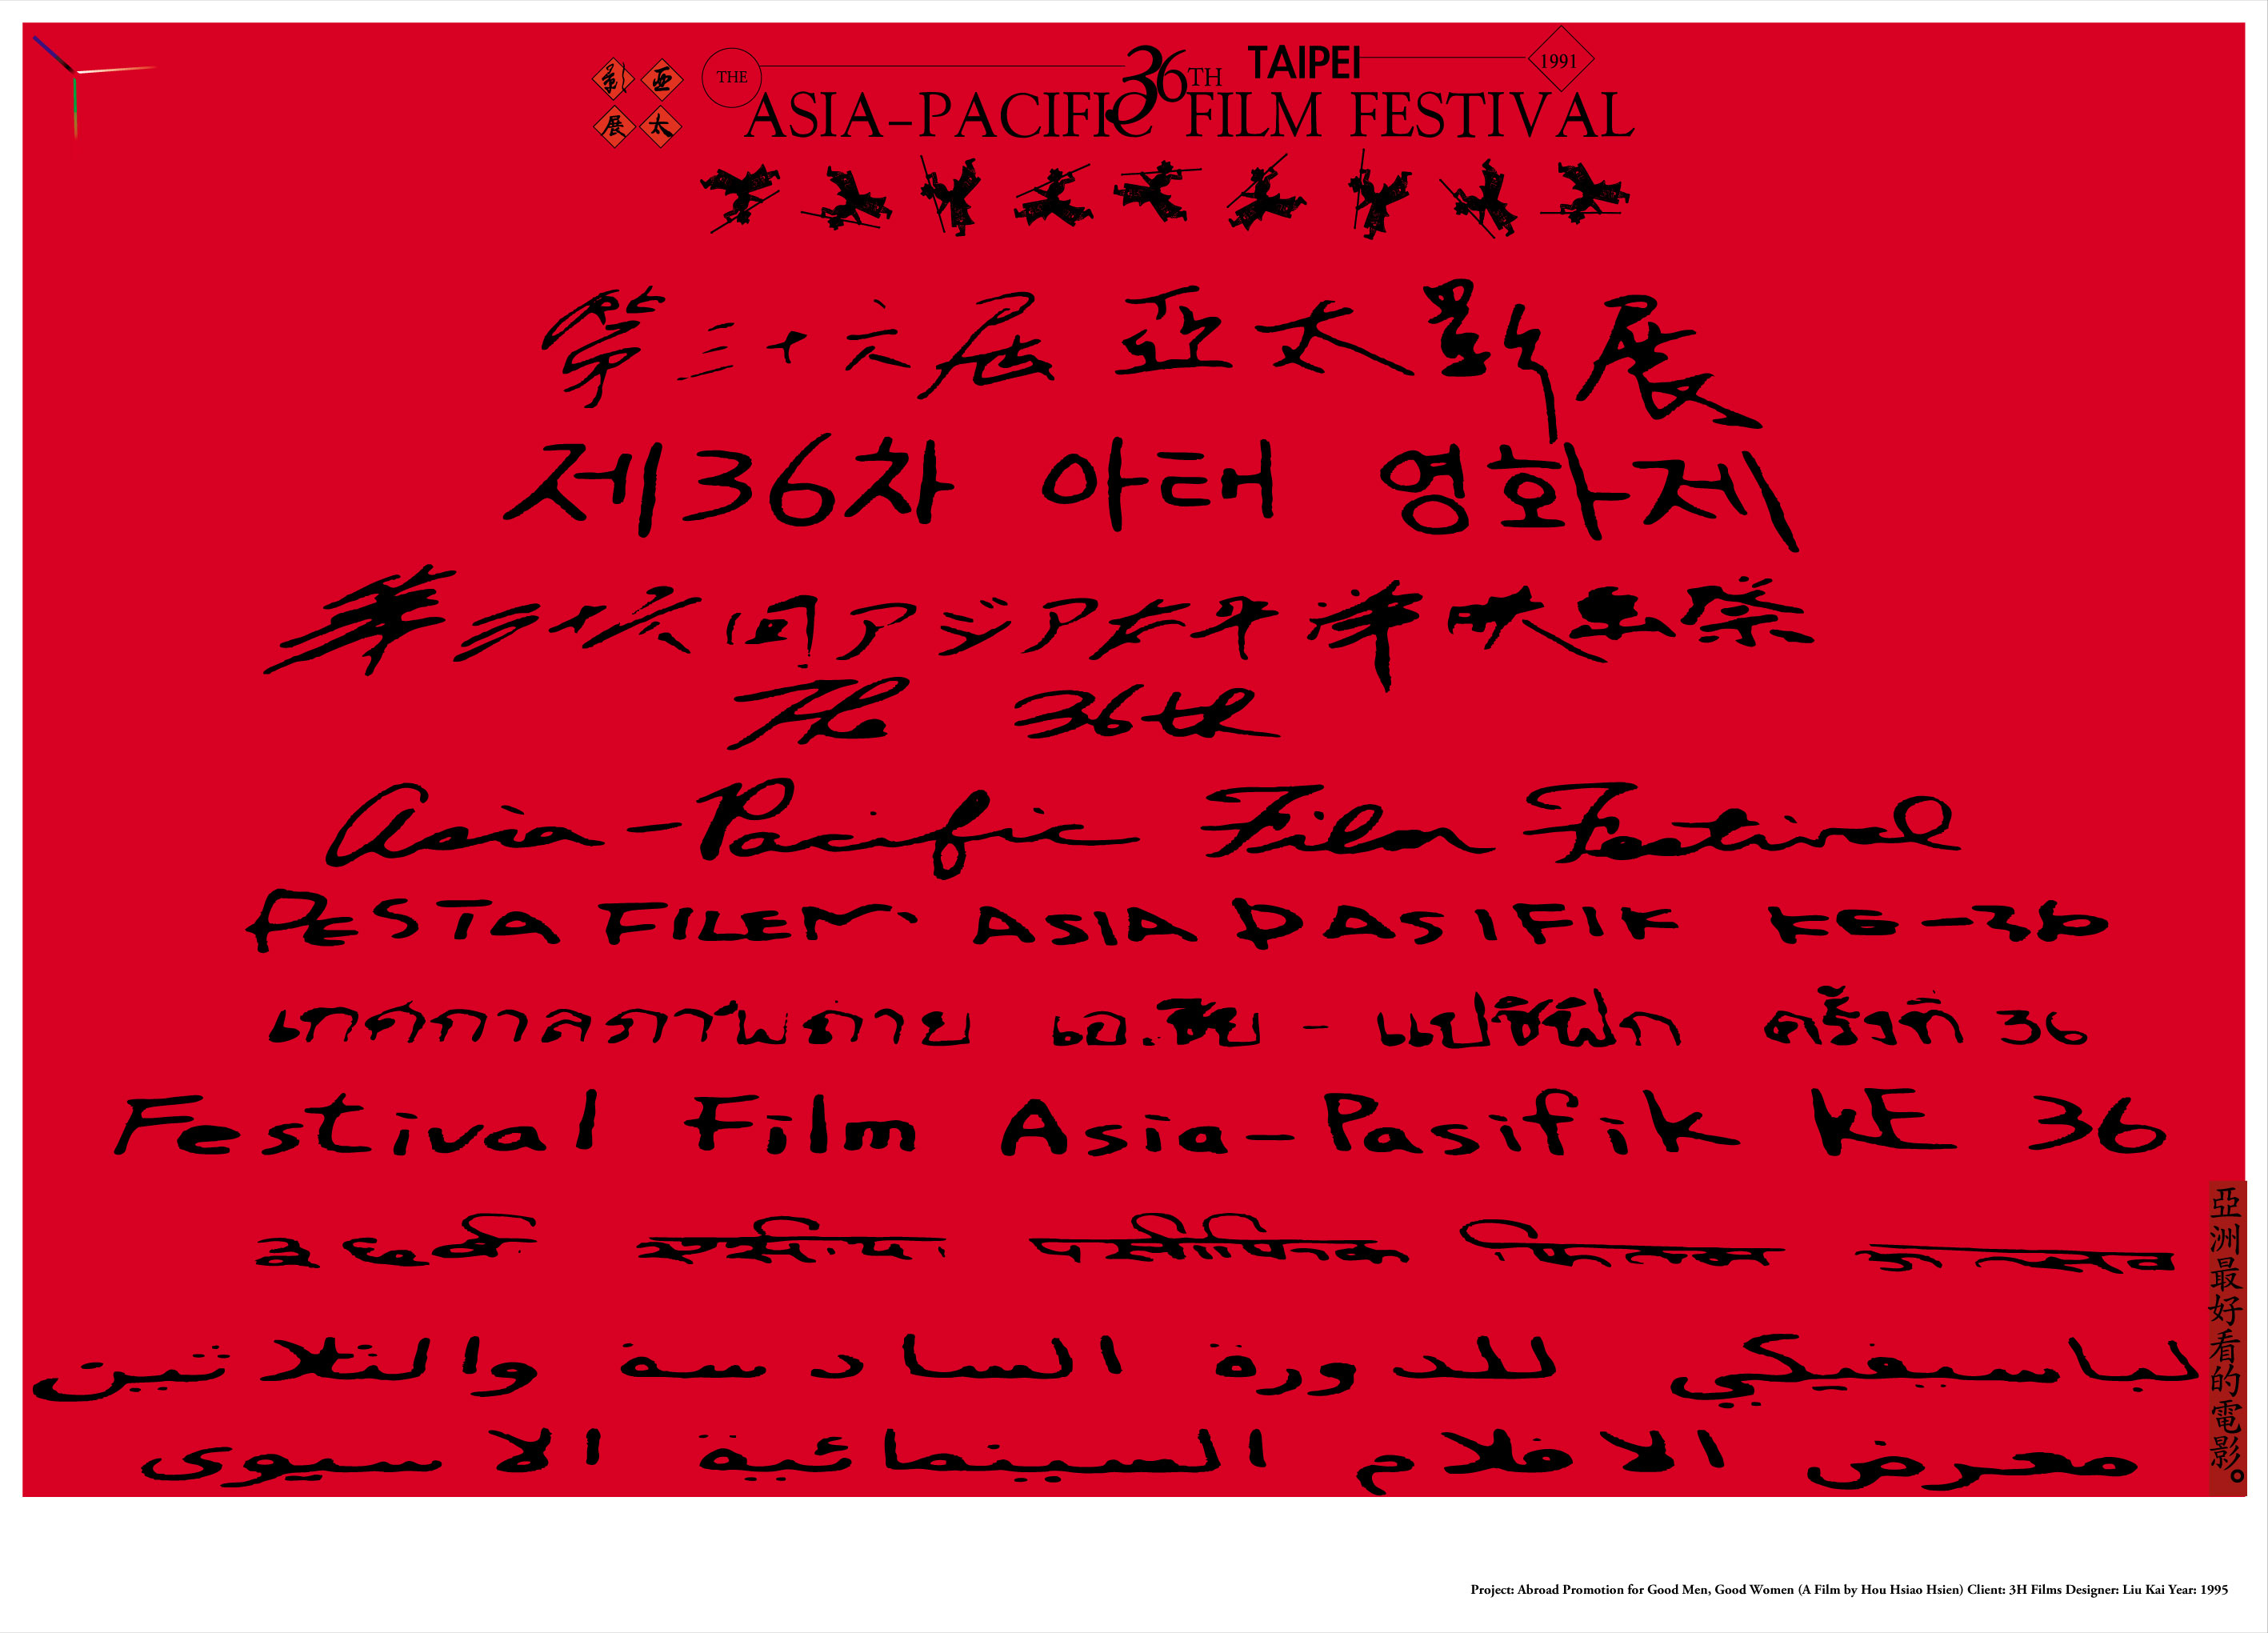 影 亞
展 太
THE 36TH TAIPEI 1991
ASIA-PACIFIC FILM FESTIVAL
第三十六屆亞太影展
제36차 아태 영화제
第三十六回アジア太平洋映画祭
The 36th
Asia-Pacific Film Festival
PESTA FILEM ASIA PASIFIK KE-36
เทศกาลภาพถ่าย เอเซีย - แปซิฟิก ครั้งที่ 36
Festival Film Asia-Pasifik KE 36
الباسيفيكي للدورة السادسة والثلاثين
معرض الافلام السينمائية الاسيوى
亞洲最好看的電影。
Project: Abroad Promotion for Good Men, Good Women (A Film by Hou Hsiao Hsien) Client: 3H Films Designer: Liu Kai Year: 1995